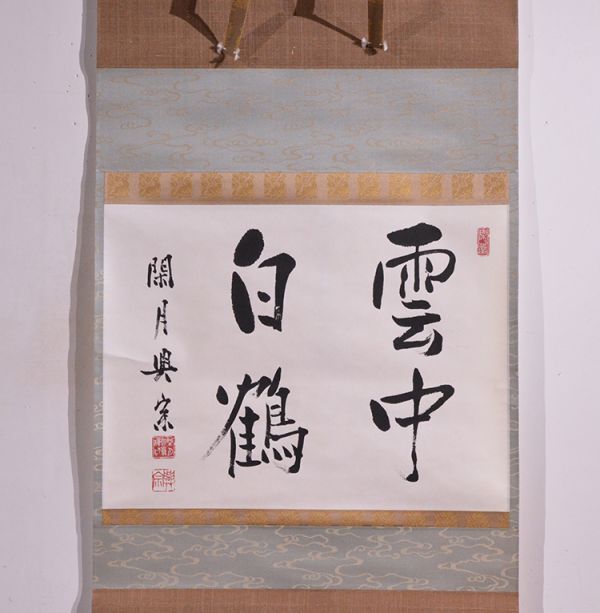 雲中
白鶴
閑月興宗